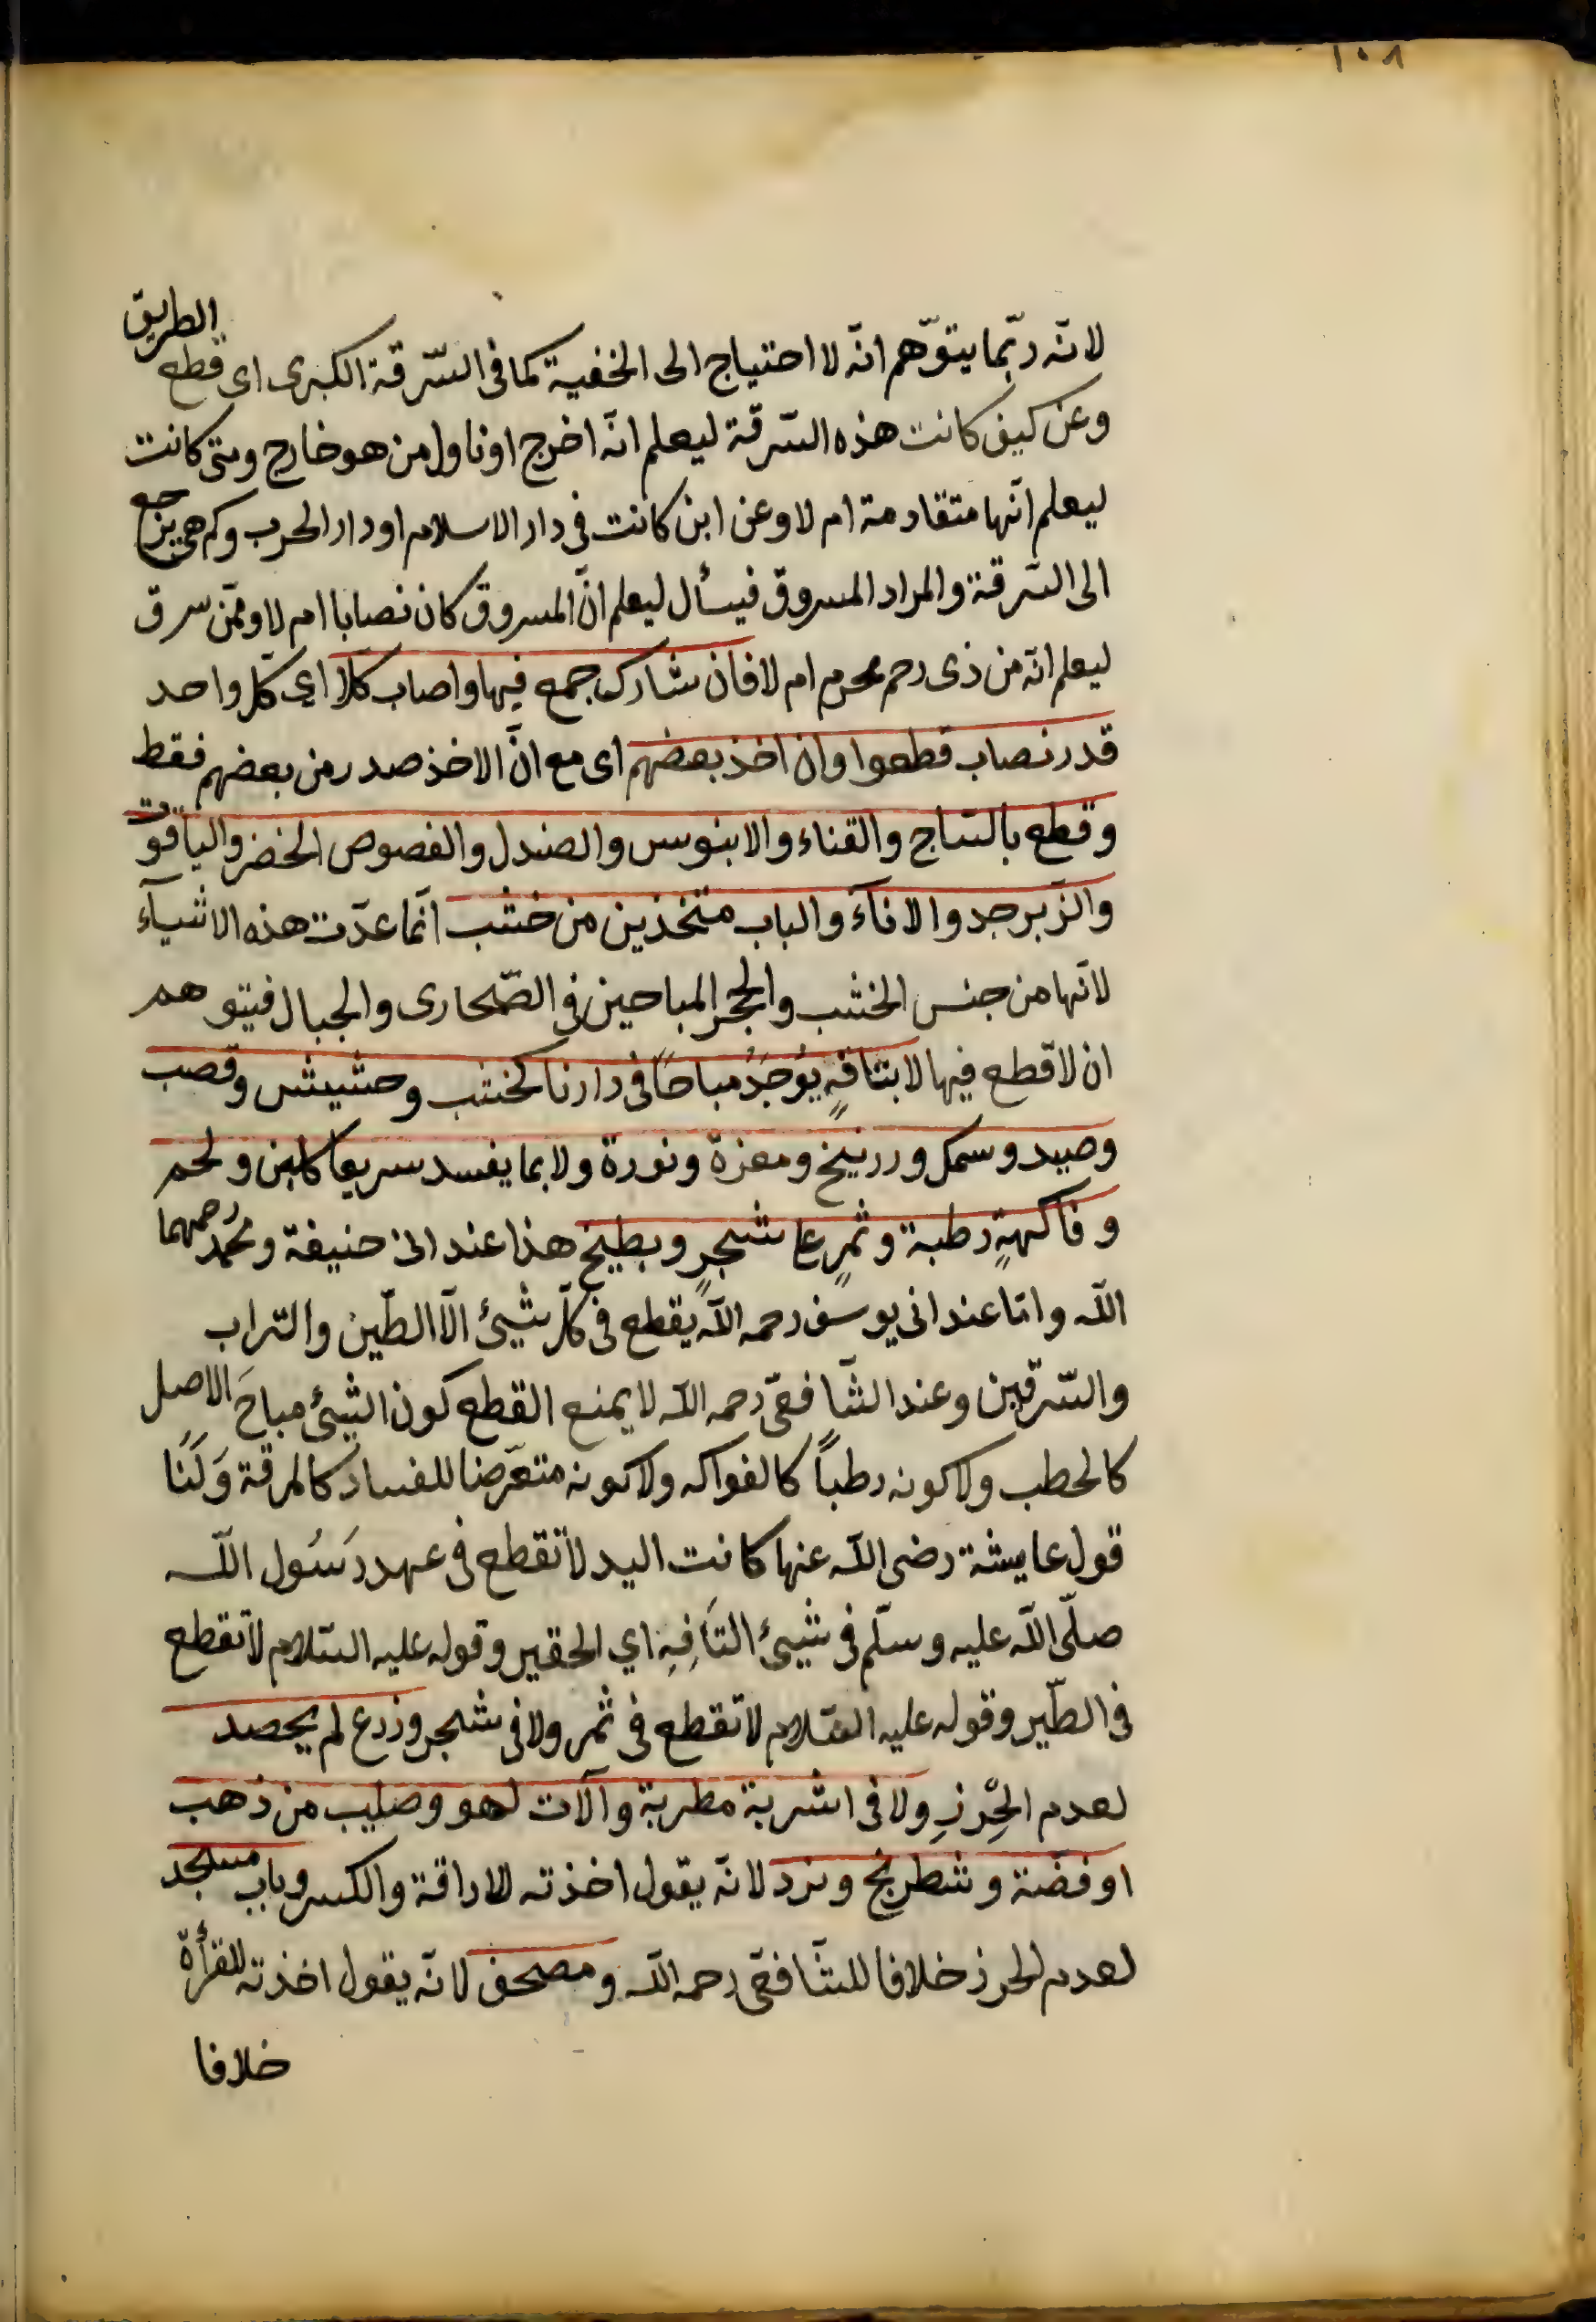 ١٠٨
لانّه ربّما يتوّهم انّه لا احتياج الى الخفية كما فى السّرقة الكبرى اى قطع الطريق
وعن كيف كانت هذه السّرقة ليعلم انّه اخرج او ناول من هو خارج ومتى كانت
ليعلم انّها متقادمة ام لا وعن اين كانت فى دار الاسلام او دار الحرب وكم هى يرجع
الى السّرقة والمراد المسروق فيسأل ليعلم انّ المسروق كان نصابا ام لا وممّن سرق
ليعلم انّه من ذى رحم محرم ام لا فان شارك جمع فيها واصاب كلّا اى كلّ واحد
قدر نصاب قطعوا وان اخذ بعضهم اى مع انّ الاخذ صدر من بعضهم فقط
وقطع بالسّاج والقناء والابنوس والصندل والفصوص الخضر والياقوت
والزّبرجد والاناء والباب متّخذين من خشب انّما عدّت هذه الاشيآء
لانّها من جنس الخشب والحجر المباحين فى الصّحارى والجبال فيتوهم
ان لا قطع فيها لا بتافهٍ يُوجَدُ مباحًا فى دارنا كخشب وحشيش وقصب
وصيد وسمك وزرنيخ ومغرة ونورة ولا بما يفسد سريعا كلبن ولحم
وفاكهةٍ رطبة وثمرٍ على شجرٍ وبطيخ هذا عند ابى حنيفة ومحمّد رحمهما
اللّه وامّا عند ابى يوسف رحمه اللّه يقطع فى كلّ شيئ الّا الطّين والتراب
والسّرقين وعند الشّافعىّ رحمه اللّه لا يمنع القطع كون الشيئ مباحَ الاصل
كالحطب ولا كونه رطباً كالفواكه ولا كونه متعرّضا للفساد كالمرقة وَلَنَا
قول عايشة رضى اللّه عنها كانت اليد لا تقطع فى عهد رَسُول اللّه
صلّى اللّه عليه وسلّم فى شيئ التافِهِ اي الحقير وقوله عليه السّلام لا تقطع
فى الطّير وقوله عليه السّلام لا تقطع فى ثمر ولا فى شجر وزرع لم يحصد
لعدم الحِرْزِ ولا فى اشربة مطربة وآلات لهو وصليب من ذهب
او فضّة وشطرنج ونرد لانّه يقول اخذته للاراقة والكسر وباب مسجد
لعدم الحرز خلافا للشّافعىّ رحمه اللّه ومصحف لانّه يقول اخذته للقرأة
خلافا